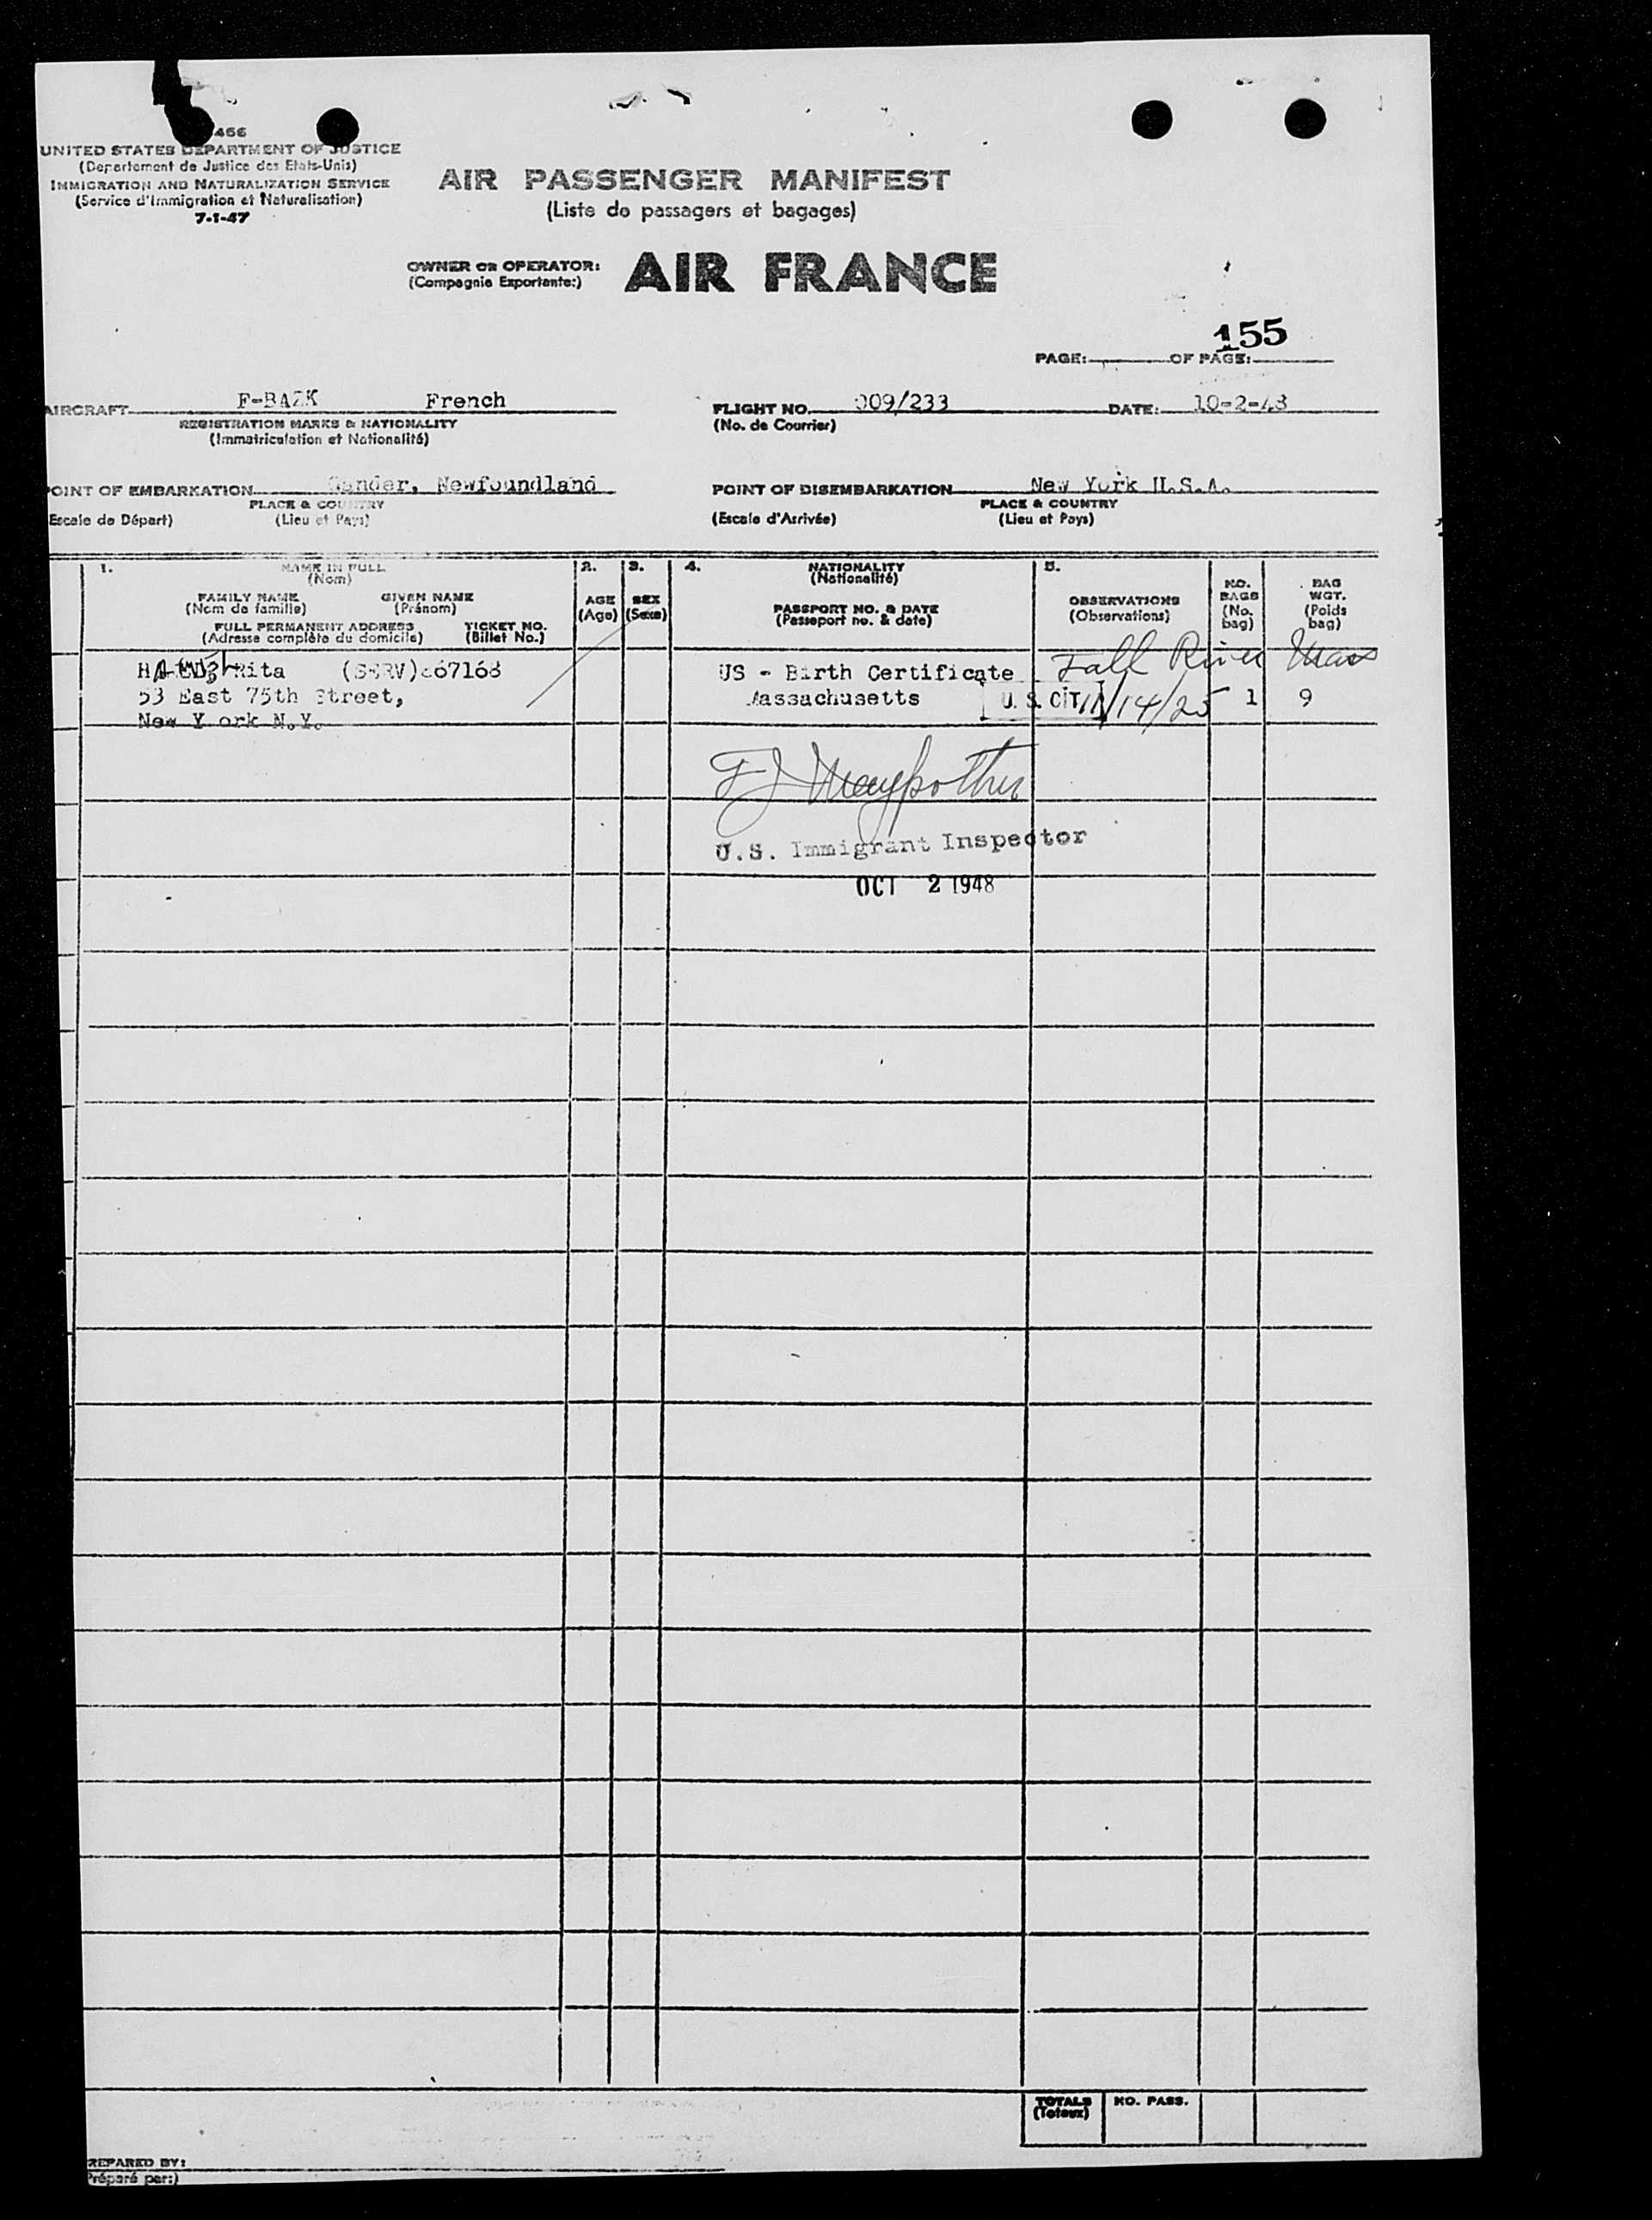 466
UNITED STATES DEPARTMENT OF JUSTICE
(Departement de Justice des Etats-Unis)
IMMIGRATION AND NATURALIZATION SERVICE
(Service d'Immigration et Naturalisation)
7-1-47
AIR PASSENGER MANIFEST
(Liste de passagers et bagages)
OWNER OR OPERATOR:
(Compagnie Exportante:)
AIR FRANCE
155
PAGE: OF PAGE:
AIRCRAFT F-BAZK French
REGISTRATION MARKS & NATIONALITY
(Immatriculation et Nationalité)
FLIGHT NO. 009/233 DATE: 10-2-48
(No. de Courrier)
OINT OF EMBARKATION Gander, Newfoundland
PLACE & COUNTRY
Escale de Départ) (Lieu et Pays)
POINT OF DISEMBARKATION New York U.S.A.
PLACE & COUNTRY
(Escale d'Arrivée) (Lieu et Pays)
1. NAME IN FULL
(Nom)
FAMILY NAME GIVEN NAME
(Nom de famille) (Prénom)
FULL PERMANENT ADDRESS TICKET NO.
(Adresse complète du domicile) (Billet No.)
2.
AGE
(Age)
3.
SEX
(Sexe)
4. NATIONALITY
(Nationalité)
PASSPORT NO. & DATE
(Passeport no. & date)
5.
OBSERVATIONS
(Observations)
NO.
BAGS
(No.
bag)
BAG
WGT.
(Poids
bag)
Rita (SERV) 267168
53 East 75th Street,
New Y ork N.Y.
US - Birth Certificate
Massachusetts
Fall River Mass
U. S. CIT. 11/14/25 1 9
U.S. Immigrant Inspector
OCT 2 1948
TOTALS
(Totaux)
NO. PASS.
REPARED BY:
Préparé par:)